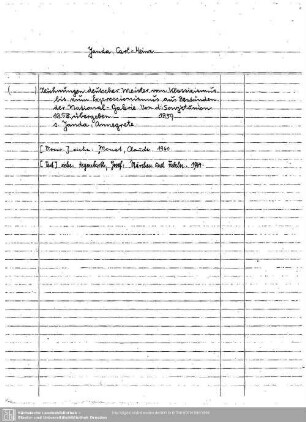 Janda, Carl-Heinz
1 Zeichnungen deutscher Meister vom Klassizismus
bis zum Expressionismus aus Beständen
der National-Galerie. Von d. Sowjetunion
1958 übergeben. - 1959
s. Janda, Annegrete
[ ] siehe: Monet, Claude 1960
[ ] siehe: Josef: Märchen und 1961
Sächsische Landesbibliothek -
Staats- und Universitätsbibliothek Dresden